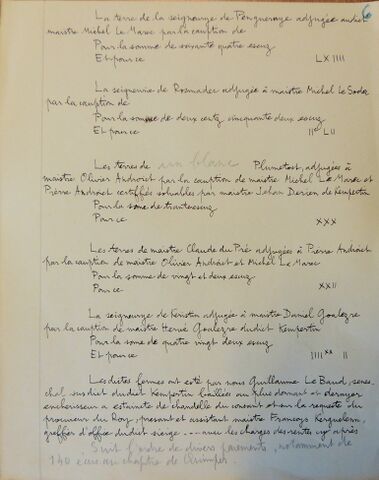 6
La terre de la seigneurye de Penguerayc adjugée audit
maistre Michel Le Marec par la caution de
Pour la somme de soixante quatre escuz
Et pour ce LXIIII
La seigneurie de Rosmadec adjugée à maistre Michel Le Sodec
par la caution de
Pour la somme de deux centz cinquante deux escuz
Et pour ce IIᶜ LII
Les terres de un blanc Plumetest, adjugées à
maistre Olivier Androict par la caution de maistre Michel Le Marec et
Pierre Androict certiffiée solvables par maistre Jehan Derien de Kempertin
Pour la some de trante escuz
Pour ce XXX
Les terres de maistre Claude du Pré adjugées à Pierre Androict
par la caution de maistre Olivier Androict et Michel Le Marec
Pour la somme de vingt et deux escuz
Pour ce XXII
La seigneurye de Keristin adjugée à maistre Daniel Goalezre
par la caution de maistre Hervé Goalezre dudict Kempertin
Pour la some de quatre vingt deux escuz
Et pour ce IIIIˣˣ II
Les dictes fermes ont esté par nous Guillaume Le Baud, senes-
chal susdict dudict Kempertin baillées au plus donnant et derrayer
encherisseur a estaincte de chandelle du consant et sur la requeste du
procureur du Roy, present et assistant maistre Françoys Kerguelenn,
greffier d'office dudict siege ... avec les charges des rentes cy après
Suit l'ordre de divers paiements, notamment de
140 écus au chapitre de Quimper